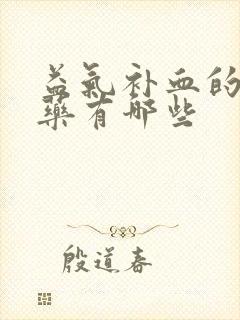 益氣补血的
藥有哪些
殷道春